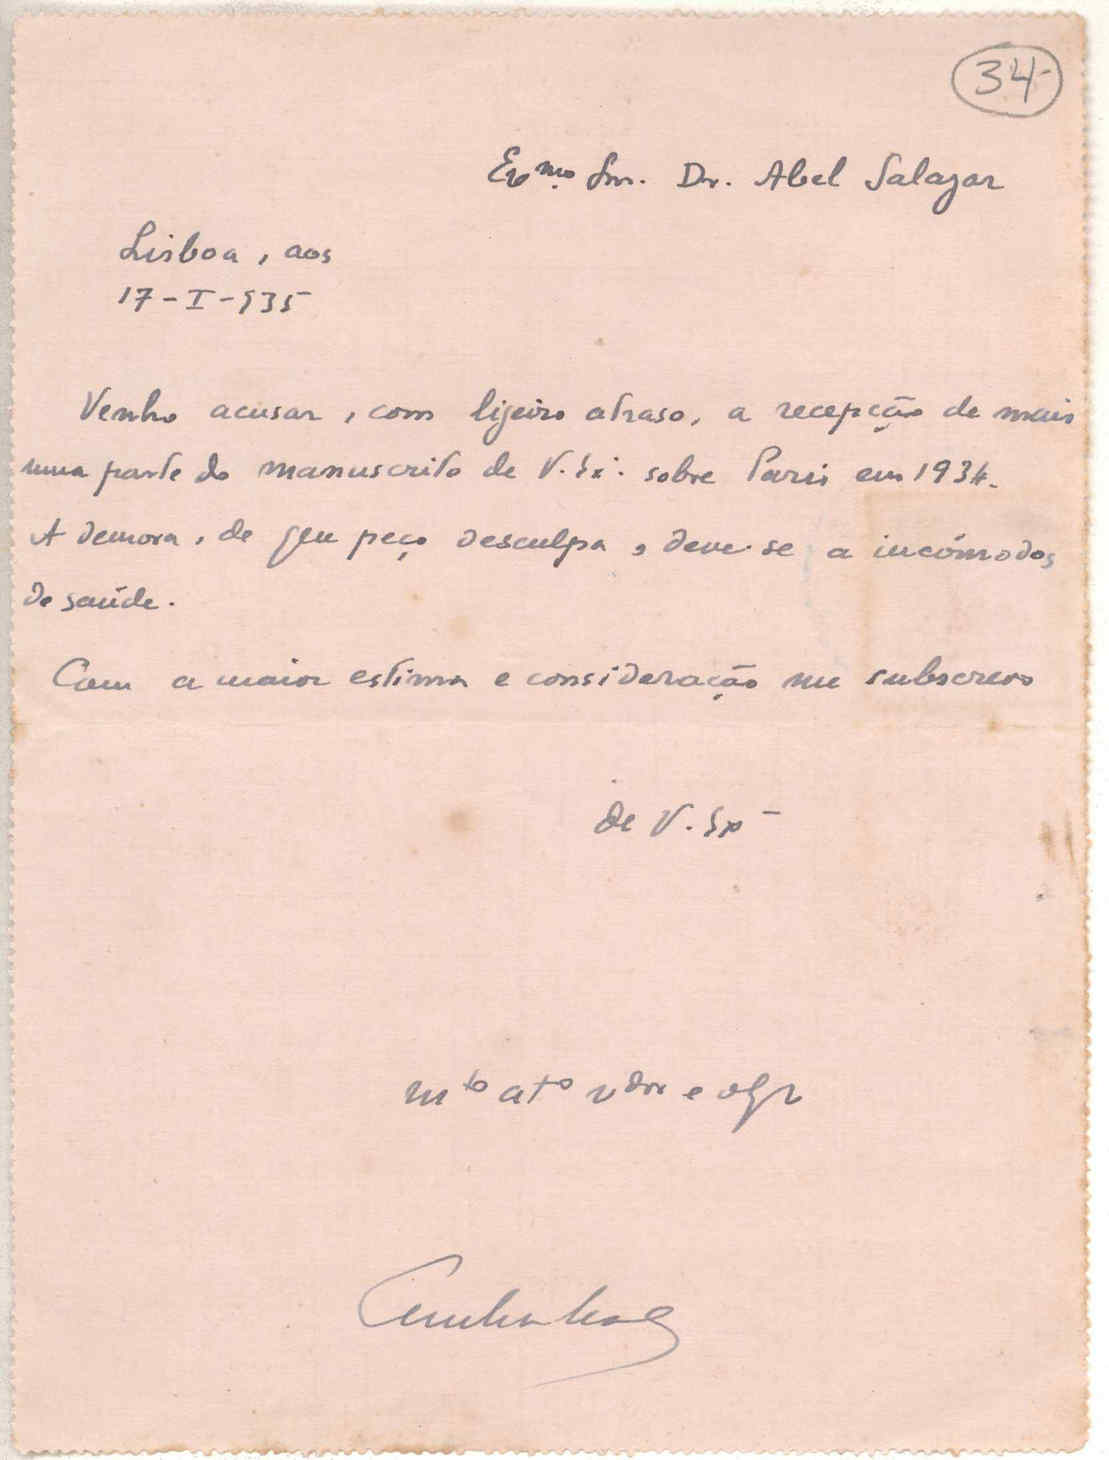 34
Exmo. Snr. Dr. Abel Salazar
Lisboa, aos
17-I-935
Venho acusar, com lijeiro atraso, a recepção de mais
uma parte do manuscrito de V. Ex. sobre Paris em 1934.
A demora, de que peço desculpa, deve-se a incómodos
de saúde.
Com a maior estima e consideração me subscrevo
de V. Ex
mto ato vdor e obgo